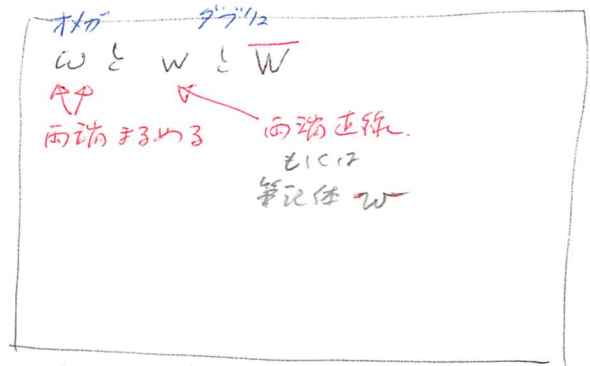 オメガ ダブリュ
ω と w と W
両端まるめる 両端直線
もしくは
筆記体 w